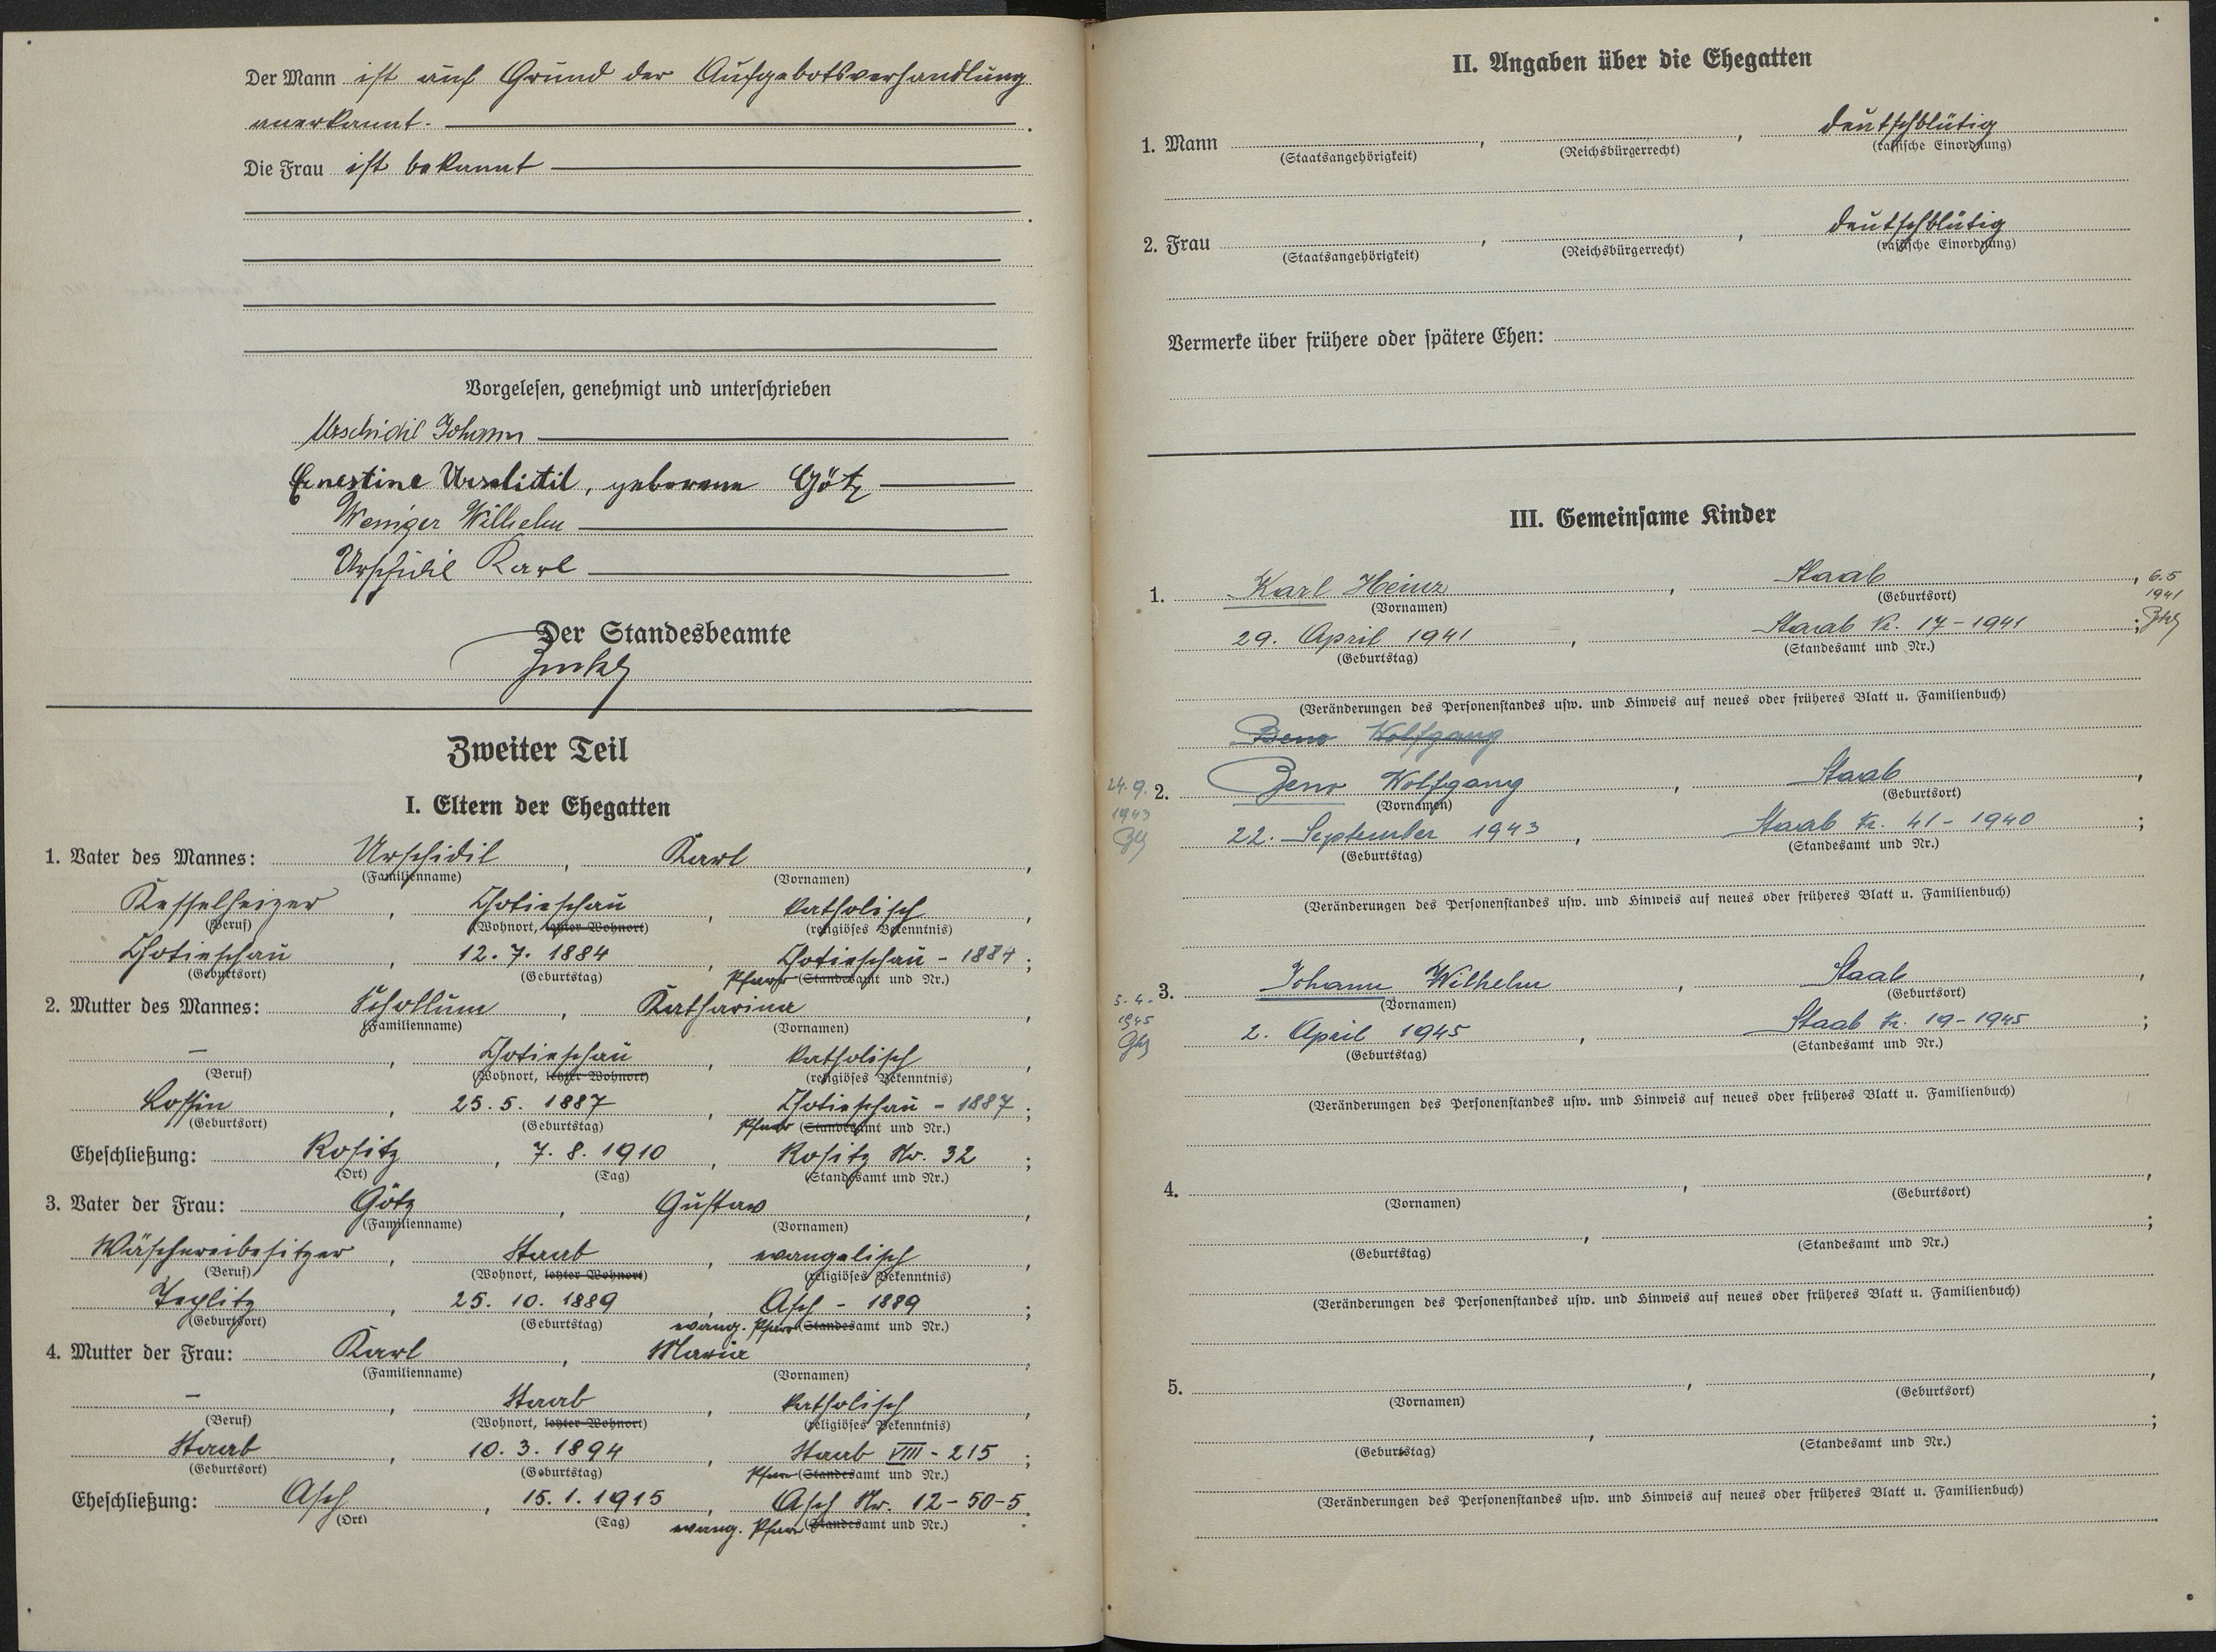 Der Mann ist auf Grund der Aufgebotsverhandlung
anerkannt.
Die Frau ist bekannt
Vorgelesen, genehmigt und unterschrieben
Urschidil Johann
Ernestine Urschidil, geborene Götz
Weniger Wilhelm
Urschidil Karl
Der Standesbeamte
Zweiter Teil
I. Eltern der Ehegatten
1. Vater des Mannes: Urschidil, Karl,
(Familienname) (Vornamen)
Kesselheizer, Chotieschau, katholisch,
(Beruf) (Wohnort, letzter Wohnort) (religiöses Bekenntnis)
Chotieschau, 12.7.1884, Chotieschau - 1884;
(Geburtsort) (Geburtstag) Pfarr (Standesamt und Nr.)
2. Mutter des Mannes: Katharina,
(Familienname) (Vornamen)
-, Chotieschau, katholisch,
(Beruf) (Wohnort, letzter Wohnort) (religiöses Bekenntnis)
25.5.1887, Chotieschau - 1887;
(Geburtsort) (Geburtstag) Pfarr (Standesamt und Nr.)
Eheschließung: Rositz, 7.8.1910, Rositz Nr. 32;
(Ort) (Tag) (Standesamt und Nr.)
3. Vater der Frau: Götz, Gustav,
(Familienname) (Vornamen)
Wäschereibesitzer, Staab, evangelisch,
(Beruf) (Wohnort, letzter Wohnort) (religiöses Bekenntnis)
Teplitz, 25.10.1889, Asch - 1889;
(Geburtsort) (Geburtstag) evang. Pfarr (Standesamt und Nr.)
4. Mutter der Frau: Karl, Maria,
(Familienname) (Vornamen)
-, Staab, katholisch,
(Beruf) (Wohnort, letzter Wohnort) (religiöses Bekenntnis)
Staab, 10.3.1894, Staab VIII - 215;
(Geburtsort) (Geburtstag) Pfarr (Standesamt und Nr.)
Eheschließung: Asch, 15.1.1915, Asch Nr. 12-50-5.
(Ort) (Tag) evang. Pfarr (Standesamt und Nr.)
II. Angaben über die Ehegatten
1. Mann, , deutschblütig
(Staatsangehörigkeit) (Reichsbürgerrecht) (rassische Einordnung)
2. Frau, , deutschblütig
(Staatsangehörigkeit) (Reichsbürgerrecht) (rassische Einordnung)
Vermerke über frühere oder spätere Ehen:
III. Gemeinsame Kinder
1. Karl Heinz, Staab, 6.5
(Vornamen) (Geburtsort) 1941
29. April 1941, Staab Nr. 17-1941;
(Geburtstag) (Standesamt und Nr.)
(Veränderungen des Personenstandes usw. und Hinweis auf neues oder früheres Blatt u. Familienbuch)
Beno Wolfgang
24.9. 2. Beno Wolfgang, Staab,
1943 (Vornamen) (Geburtsort)
22. September 1943, Staab Nr. 41-1940;
(Geburtstag) (Standesamt und Nr.)
(Veränderungen des Personenstandes usw. und Hinweis auf neues oder früheres Blatt u. Familienbuch)
5.4. 3. Johann Wilhelm, Staab,
1945 (Vornamen) (Geburtsort)
2. April 1945, Staab Nr. 19-1945;
(Geburtstag) (Standesamt und Nr.)
(Veränderungen des Personenstandes usw. und Hinweis auf neues oder früheres Blatt u. Familienbuch)
4. , ,
(Vornamen) (Geburtsort)
, ;
(Geburtstag) (Standesamt und Nr.)
(Veränderungen des Personenstandes usw. und Hinweis auf neues oder früheres Blatt u. Familienbuch)
5. , ,
(Vornamen) (Geburtsort)
, ;
(Geburtstag) (Standesamt und Nr.)
(Veränderungen des Personenstandes usw. und Hinweis auf neues oder früheres Blatt u. Familienbuch)